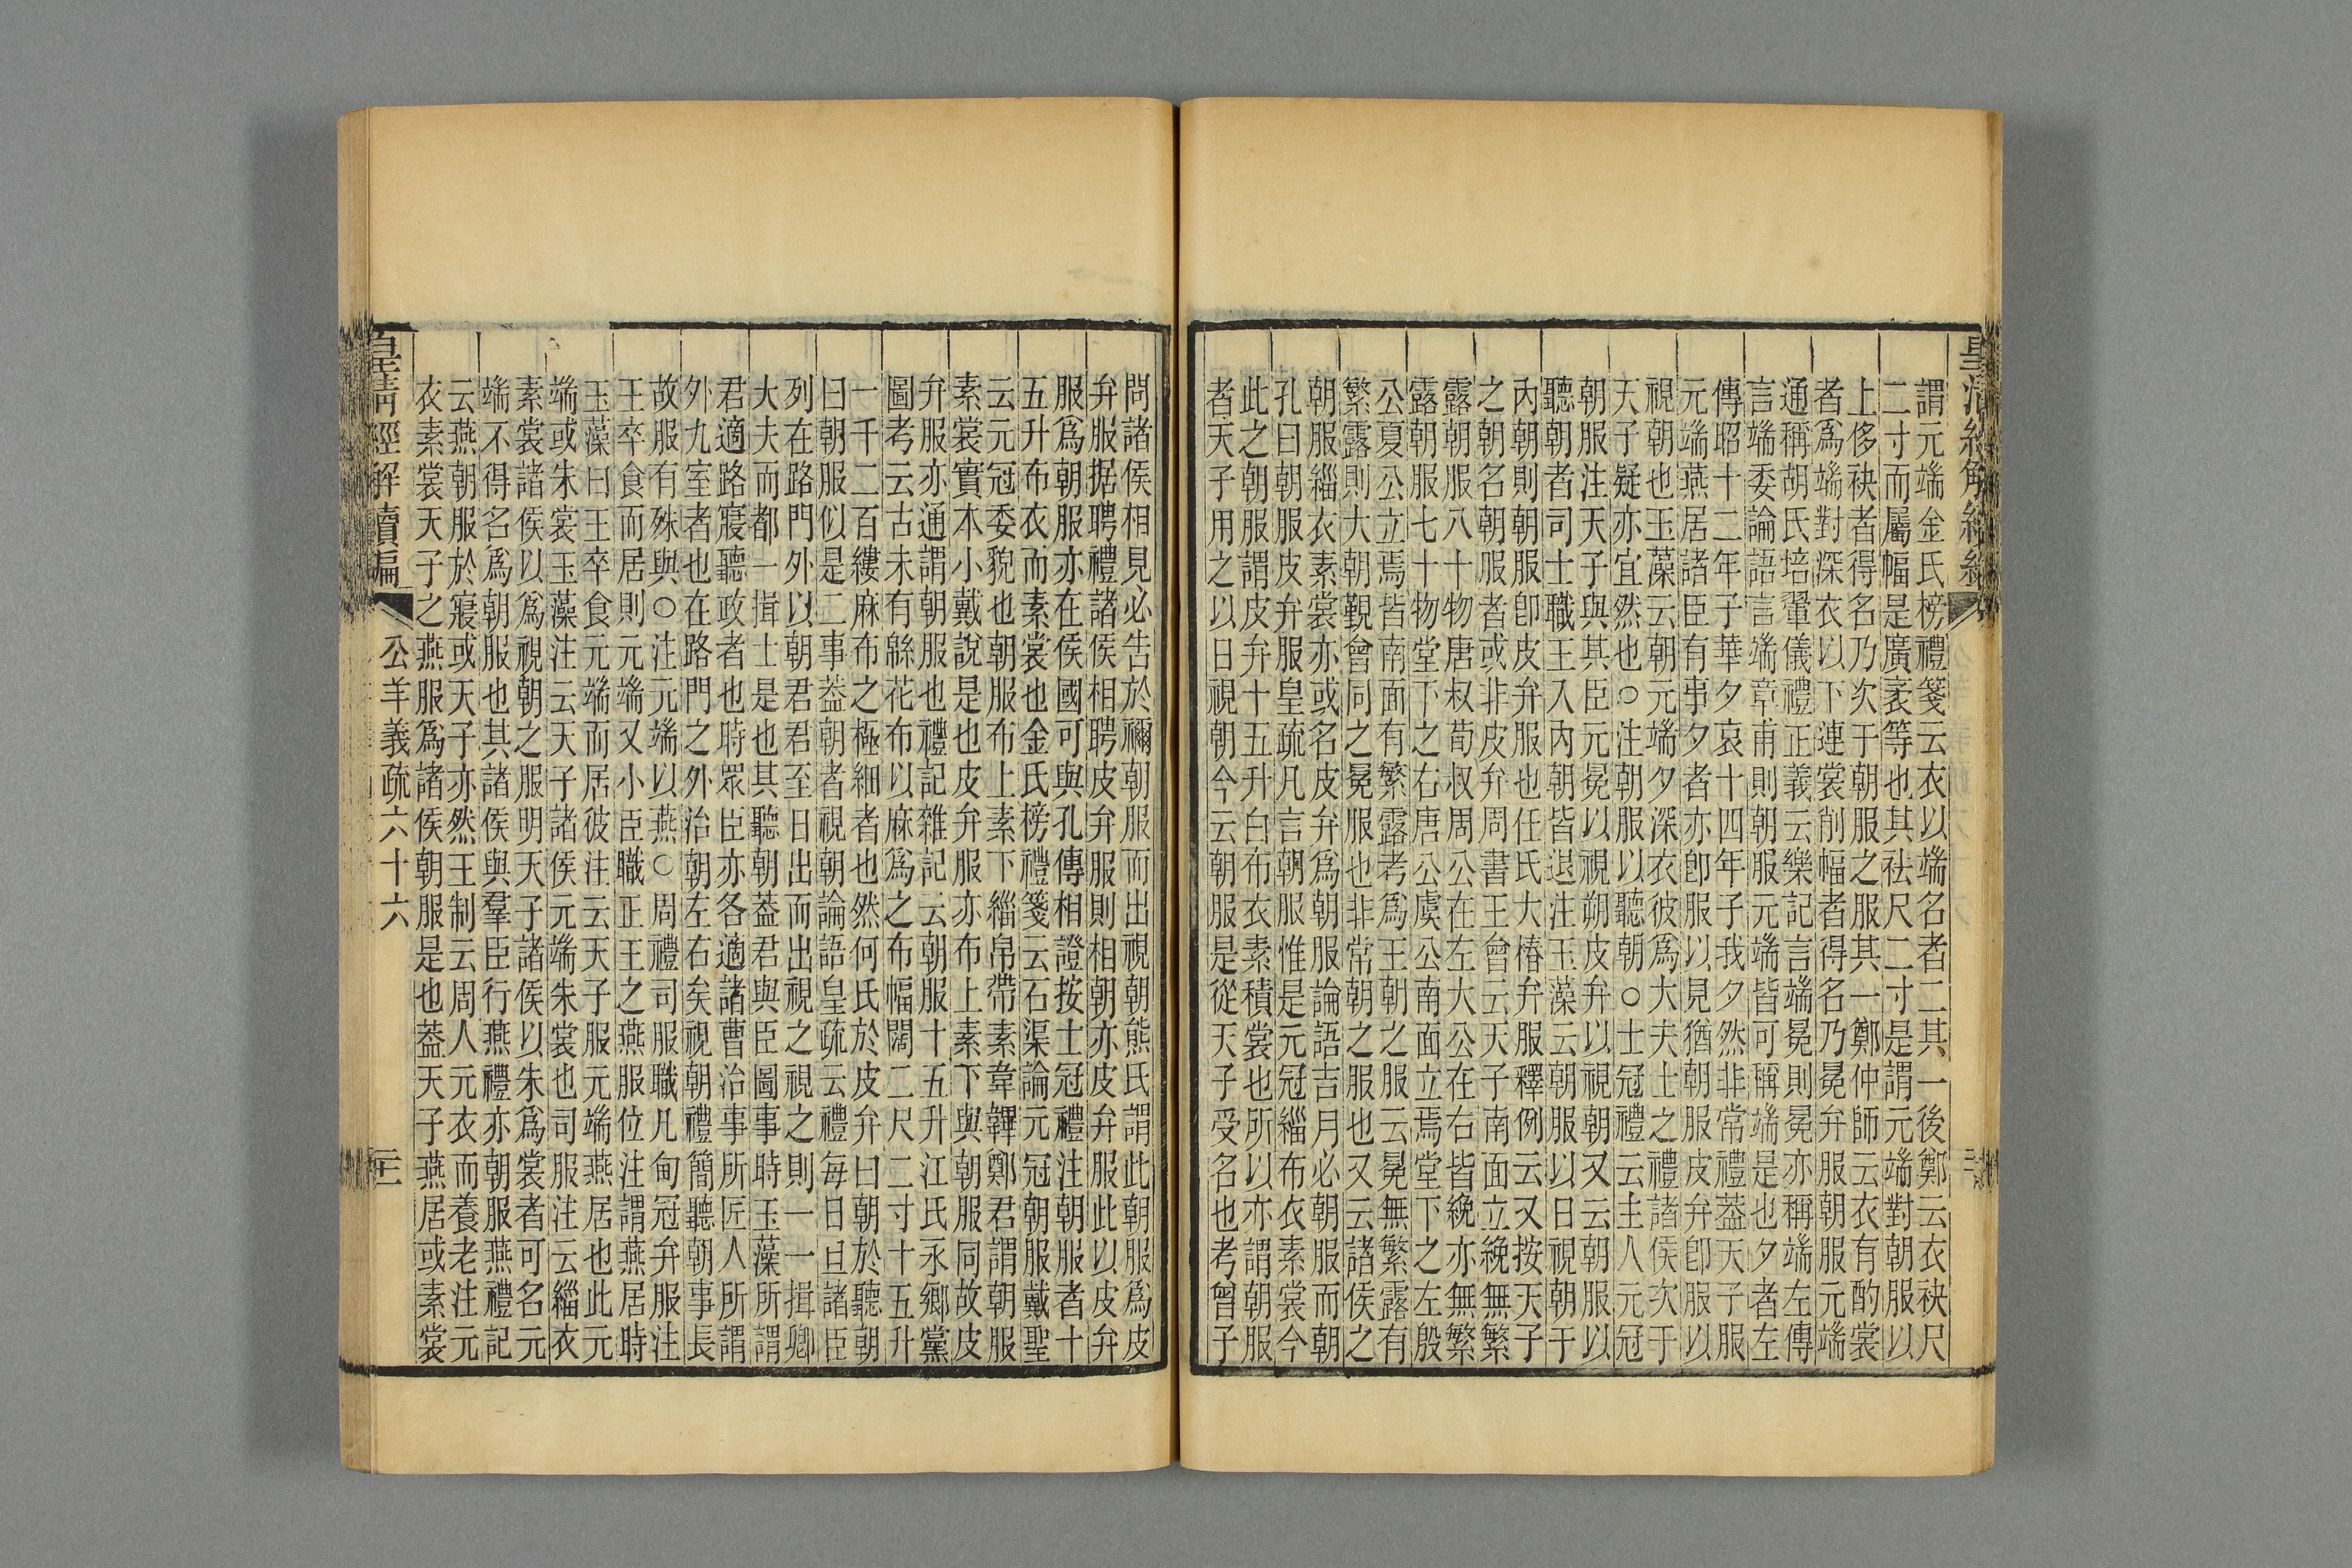 謂元端金氏榜禮箋云衣以端名者二其一後鄭云衣袂尺
二寸而屬幅是廣袤等也其袪尺二寸是謂元端對朝服以
上侈袂者得名乃次于朝服之服其一鄭仲師云衣有䣛裳
者爲端對深衣以下連裳削幅者得名乃冕弁服朝服元端
通稱胡氏培翬儀禮正義云樂記言端冕則冕亦稱端左傳
言端委論語言端章甫則朝服元端皆可稱端是也夕者左
傳昭十二年子華夕哀十四年子我夕然非常禮蓋天子服
元端燕居諸臣有事夕者亦卽服以見猶朝服皮弁卽服以
視朝也玉藻云朝元端夕深衣彼爲大夫士之禮諸侯次于
天子疑亦宜然也○注朝服以聽朝○士冠禮云主人元冠
朝服注天子與其臣元冕以視朔皮弁以視朝又云朝服以
聽朝者司士職王入內朝皆退注玉藻云朝服以日視朝于
內朝則朝服卽皮弁服也任氏大椿弁服釋例云又按天子
之朝名朝服者或非皮弁周書王曾云天子南面立絻無繁
露朝服八十物唐叔荀叔周公在左大公在右皆絻亦無繁
露朝服七十物堂下之右唐公虞公南面立焉堂下之左殷
公夏公立焉皆南面有繁露考爲王朝之服云冕無繁露有
繁露則大朝覲曾同之冕服也非常朝之服也又云諸侯之
朝服緇衣素裳亦或名皮弁爲朝服論語吉月必朝服而朝
孔曰朝服皮弁服皇疏凡言朝服惟是元冠緇布衣素裳今
此之朝服謂皮弁十五升白布衣素積裳也所以亦謂朝服
者天子用之以日視朝今云朝服是從天子受名也考曾子
問諸侯相見必告於禰朝服而出視朝熊氏謂此朝服爲皮
弁服据聘禮諸侯相聘皮弁服則相朝亦皮弁服此以皮弁
服爲朝服亦在侯國可與孔傳相證按士冠禮注朝服者十
五升布衣而素裳也金氏榜禮箋云石渠論元冠朝服戴聖
云元冠委貌也朝服布上素下緇帛帶素韋韠鄭君謂朝服
素裳實本小戴說是也皮弁服亦布上素下與朝服同故皮
弁服亦通謂朝服也禮記雜記云朝服十五升江氏永鄉黨
圖考云古未有緜花布以麻爲之布幅闊二尺二寸十五升
一千二百縷麻布之極細者也然何氏於皮弁曰朝於聽朝
曰朝服似是二事蓋朝者視朝論語皇疏云禮每日旦諸臣
列在路門外以朝君君至日出而出視之視之則一一揖卿
大夫而都一揖士是也其聽朝蓋君與臣圖事時玉藻所謂
君適路寢聽政者也時眾臣亦各適諸曹治事所匠人所謂
外九室者也在路門之外治朝左右矣視朝禮簡聽朝事長
故服有殊與○注元端以燕○周禮司服職凡甸冠弁服注
王卒食而居則元端又小臣職正王之燕服位注謂燕居時
玉藻曰王卒食元端而居彼注云天子服元端燕居也此元
端或朱裳玉藻注云天子諸侯元端朱裳也司服注云緇衣
素裳諸侯以爲視朝之服明天子諸侯以朱爲裳者可名元
端不得名爲朝服也其諸侯與羣臣行燕禮亦朝服燕禮記
云燕朝服於寢或天子亦然王制云周人元衣而養老注元
衣素裳天子之燕服爲諸侯朝服是也蓋天子燕居或素裳
皇清經解續編
公羊義疏六十六